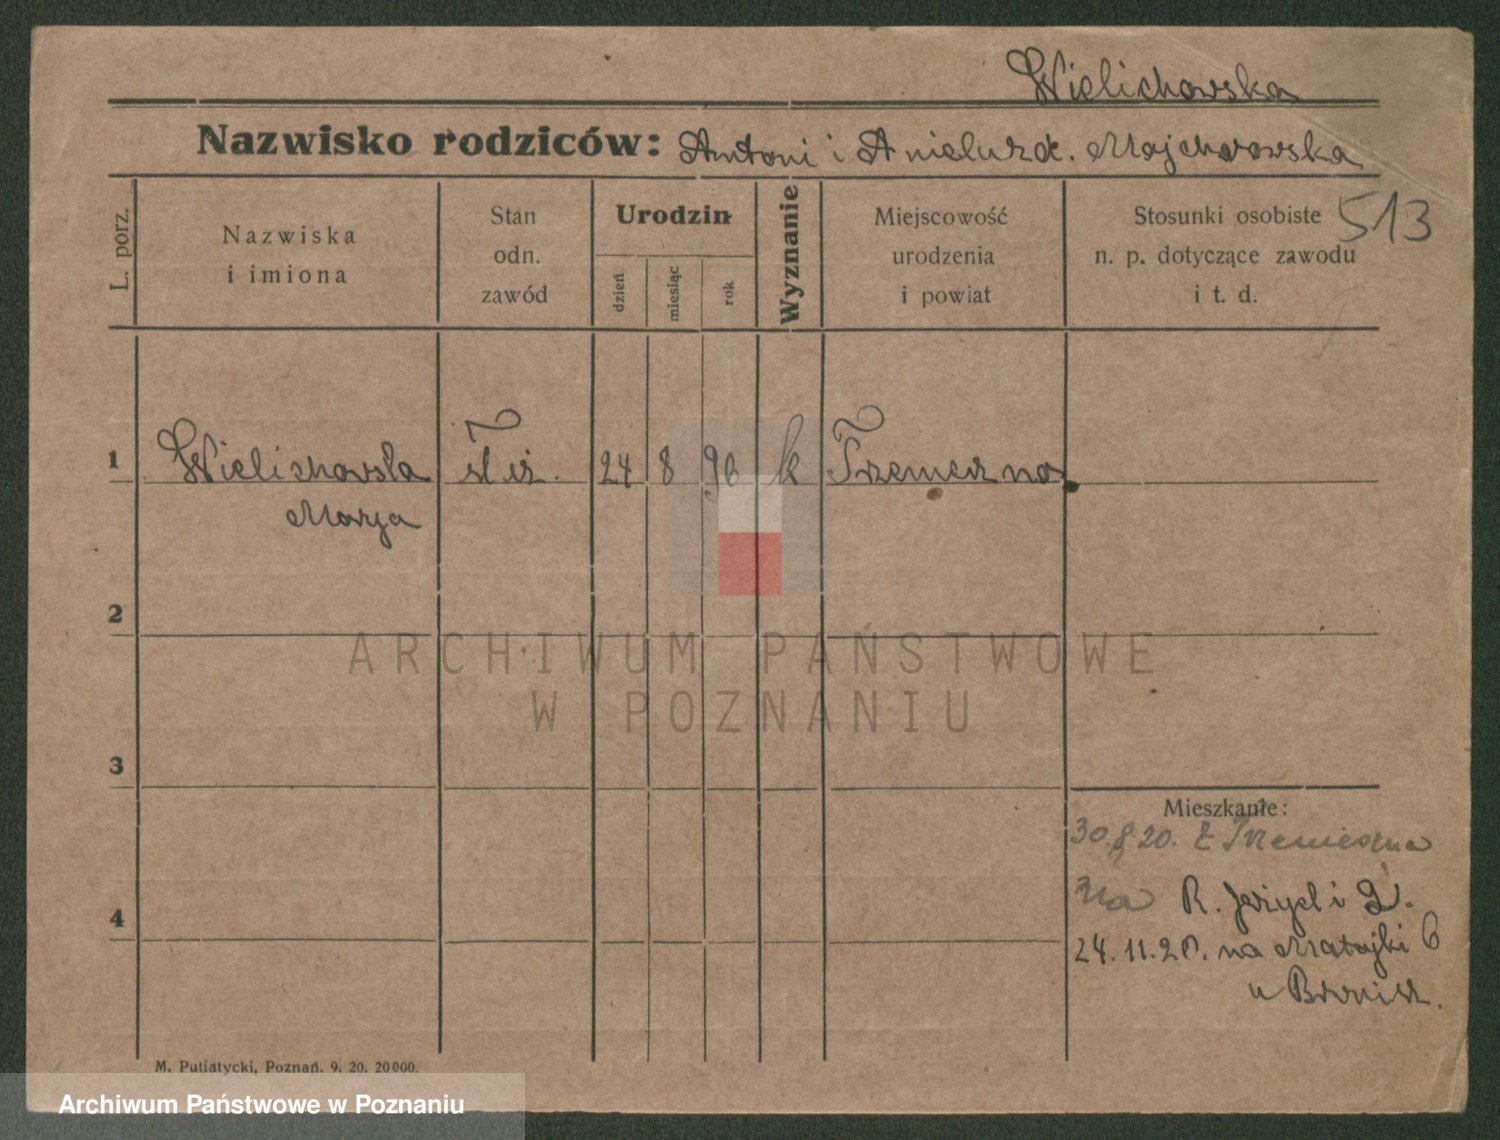 Wielichowska
Nazwisko rodziców: Antoni i Aniela zd. Majchrowska
513
L. porz.
Nazwiska
i imiona
Stan
odn.
zawód
Urodzin
dzień
miesiąc
rok
Wyznanie
Miejscowość
urodzenia
i powiat
Stosunki osobiste
n. p. dotyczące zawodu
i t. d.
1 Wielichowska 24 8 96 k Trzemeszno
Marja
2
3
4
Mieszkanie:
30.8.20. z Trzemeszna
na R. Jeżycki 2.
24.11.20. na Matejki 6
u
M. Putiatycki, Poznań. 9. 20. 20000.
ARCHIWUM PAŃSTWOWE
W POZNANIU
Archiwum Państwowe w Poznaniu